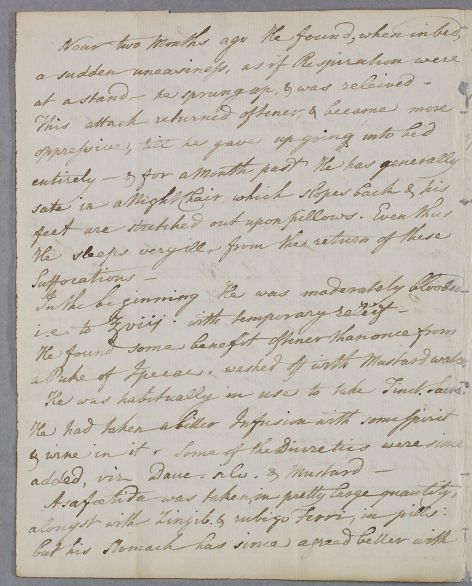 Near two months ago He found, when in bed,
a sudden uneasiness, as if Respiration were
at a stand – he sprung up, & was releived –
This attack returned oftener, & became more
oppressive, till he gave up going into bed
entirely – & for a Month past He has generally
sate in a Night Chair which slopes back & his
feet are stretched out upon pillows. Even thus
He sleeps very ill, from the return of these
Suffocations –
In the beginning He was moderately blooded
i.e. to ℥viij. with temporary releif –
He found some benefit oftener than once from
a Puke of Ipecac. washed off with Mustard
He was habitually in use to take Tinct. Sacra.
He had taken a bitter Infusion with some Spirit
& wine in it. Some of the Diuretics were since
added, viz. Dauc. & Mustard –
Asafœtida was taken, in pretty large quantity,
alongst with Zingib. & rubigo Ferri, in pills:
but his Stomach has since agreed better with